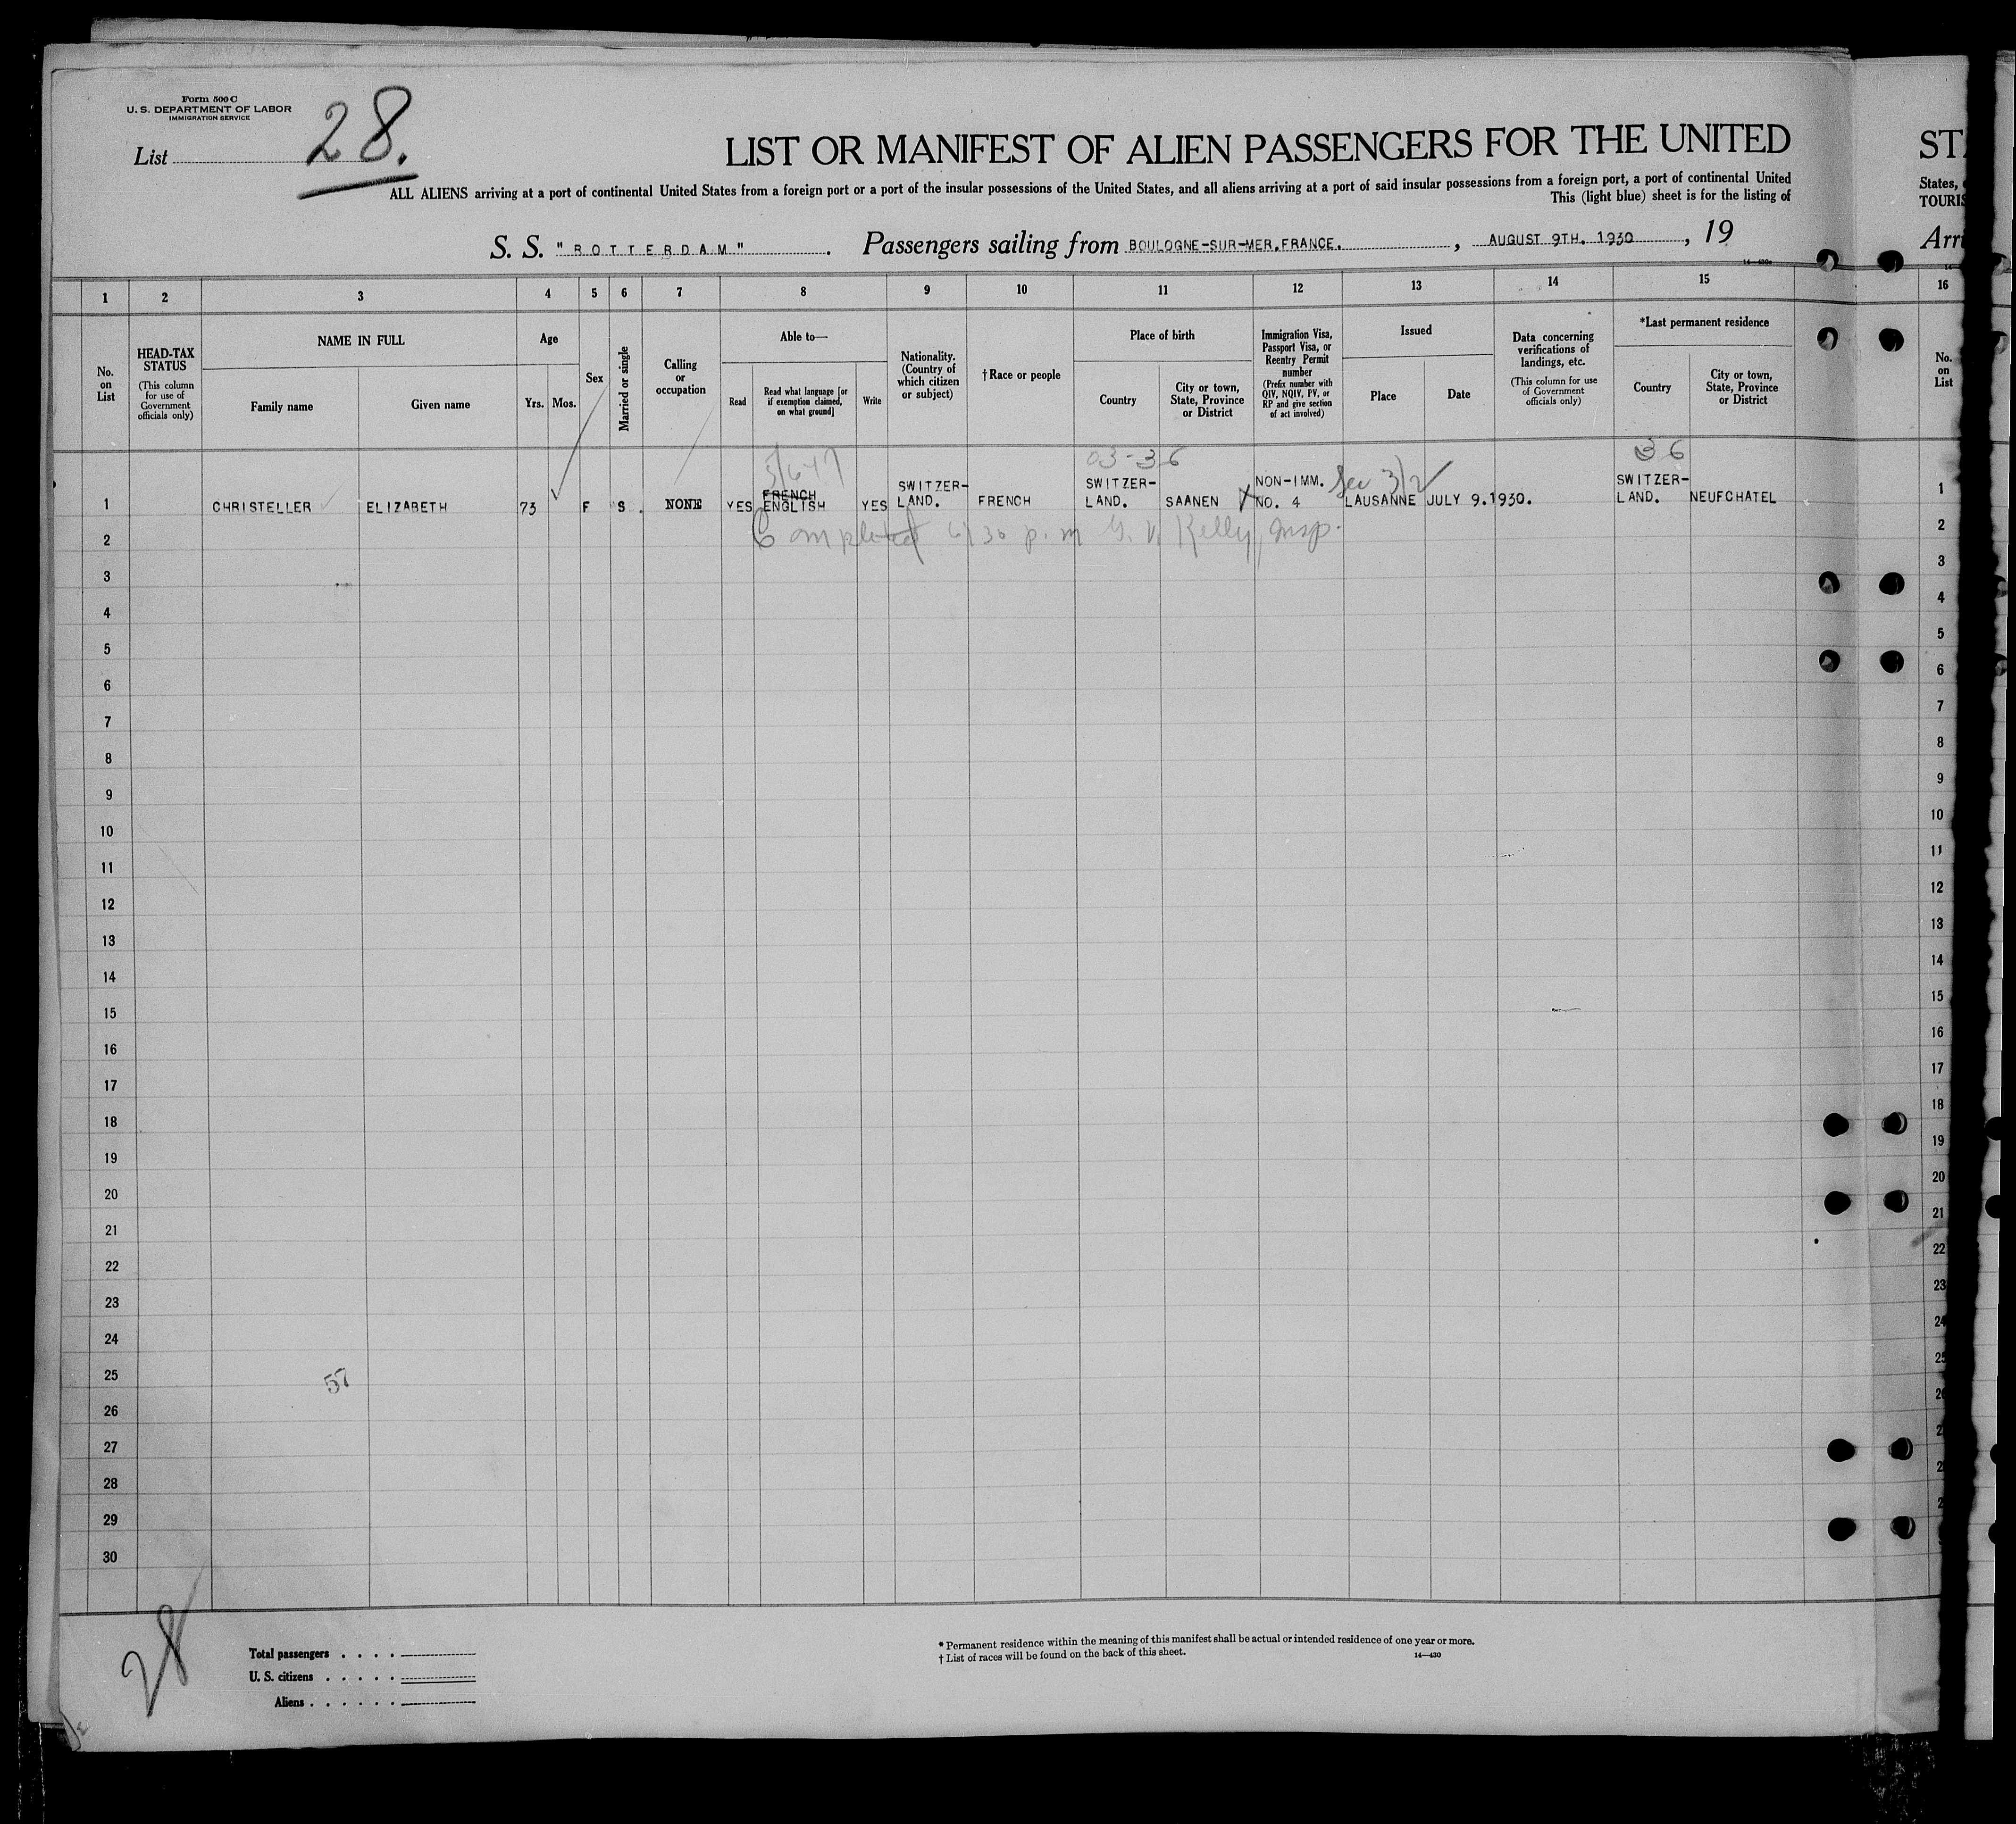 Form 500 C
U. S. DEPARTMENT OF LABOR
IMMIGRATION SERVICE
List 28.
LIST OR MANIFEST OF ALIEN PASSENGERS FOR THE UNITED
ALL ALIENS arriving at a port of continental United States from a foreign port or a port of the insular possessions of the United States, and all aliens arriving at a port of said insular possessions from a foreign port, a port of continental United
This (light blue) sheet is for the listing of
S. S. "ROTTERDAM". Passengers sailing from BOULOGNE-SUR-MER.FRANCE., AUGUST 9TH. 1930, 19
States,
TOURIS
Arri
1 2 3 4 5 6 7 8 9 10 11 12 13 14 15 16
No. on List
HEAD-TAX STATUS
(This column for use of Government officials only)
NAME IN FULL
Family name
Given name
Age
Yrs. Mos.
Sex
Married or single
Calling or occupation
Able to—
Read
Read what language [or if exemption claimed, on what ground]
Write
Nationality. (Country of which citizen or subject)
† Race or people
Place of birth
Country
City or town, State, Province or District
Immigration Visa, Passport Visa, or Reentry Permit number
(Prefix number with QIV, NQIV, PV, or RP and give section of act involved)
Issued
Place
Date
Data concerning verifications of landings, etc.
(This column for use of Government officials only)
*Last permanent residence
Country
City or town, State, Province or District
No. on List
03-36
36
1 CHRISTELLER ELIZABETH 73 F S. NONE YES FRENCH ENGLISH YES SWITZER-LAND. FRENCH SWITZER-LAND. SAANEN NON-IMM. NO. 4 Sec 3/2 LAUSANNE JULY 9.1930. SWITZER-LAND. NEUFCHATEL 1
2 Completed 6/30 p.m G. V. Kelly, Insp. 2
3 3
4 4
5 5
6 6
7 7
8 8
9 9
10 10
11 11
12 12
13 13
14 14
15 15
16 16
17 17
18 18
19 19
20 20
21 21
22 22
23 23
24 24
25 57
26
27
28
29
30
28
Total passengers
U. S. citizens
Aliens
* Permanent residence within the meaning of this manifest shall be actual or intended residence of one year or more.
† List of races will be found on the back of this sheet.
14—430